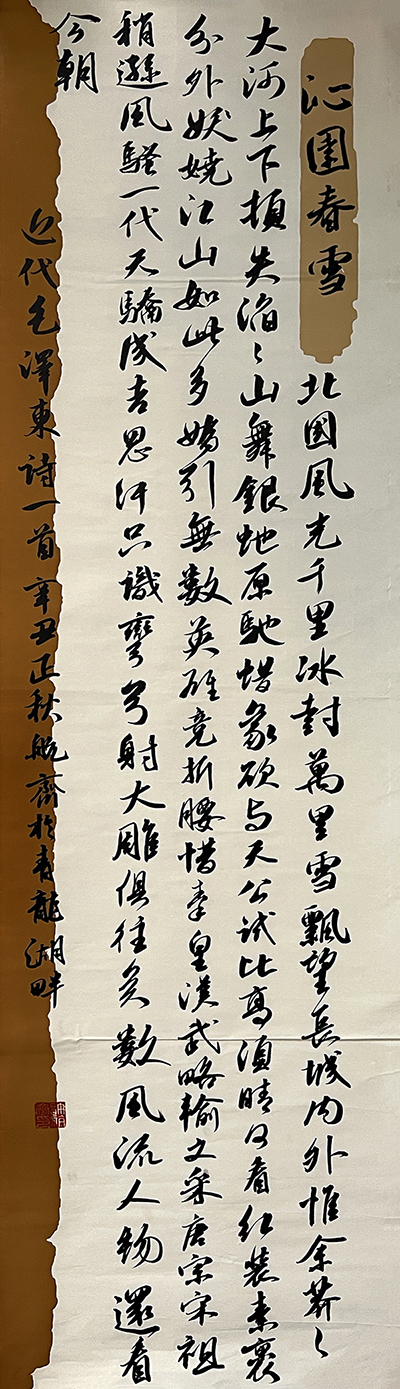 沁園春雪
北國風光千里冰封萬里雪飄望長城内外惟余莽〻
大河上下頓失滔〻山舞銀蛇原馳蜡象欲与天公试比高須晴日看红装素裹
分外妖嬈江山如此多嬌引無數英雄竞折腰惜秦皇漢武略輸文采唐宗宋祖
稍遜風騷一代天驕成吉思汗只識彎弓射大雕俱往矣數風流人物還看
今朝
近代毛澤東诗一首辛丑正秋航齋於青龍湖畔